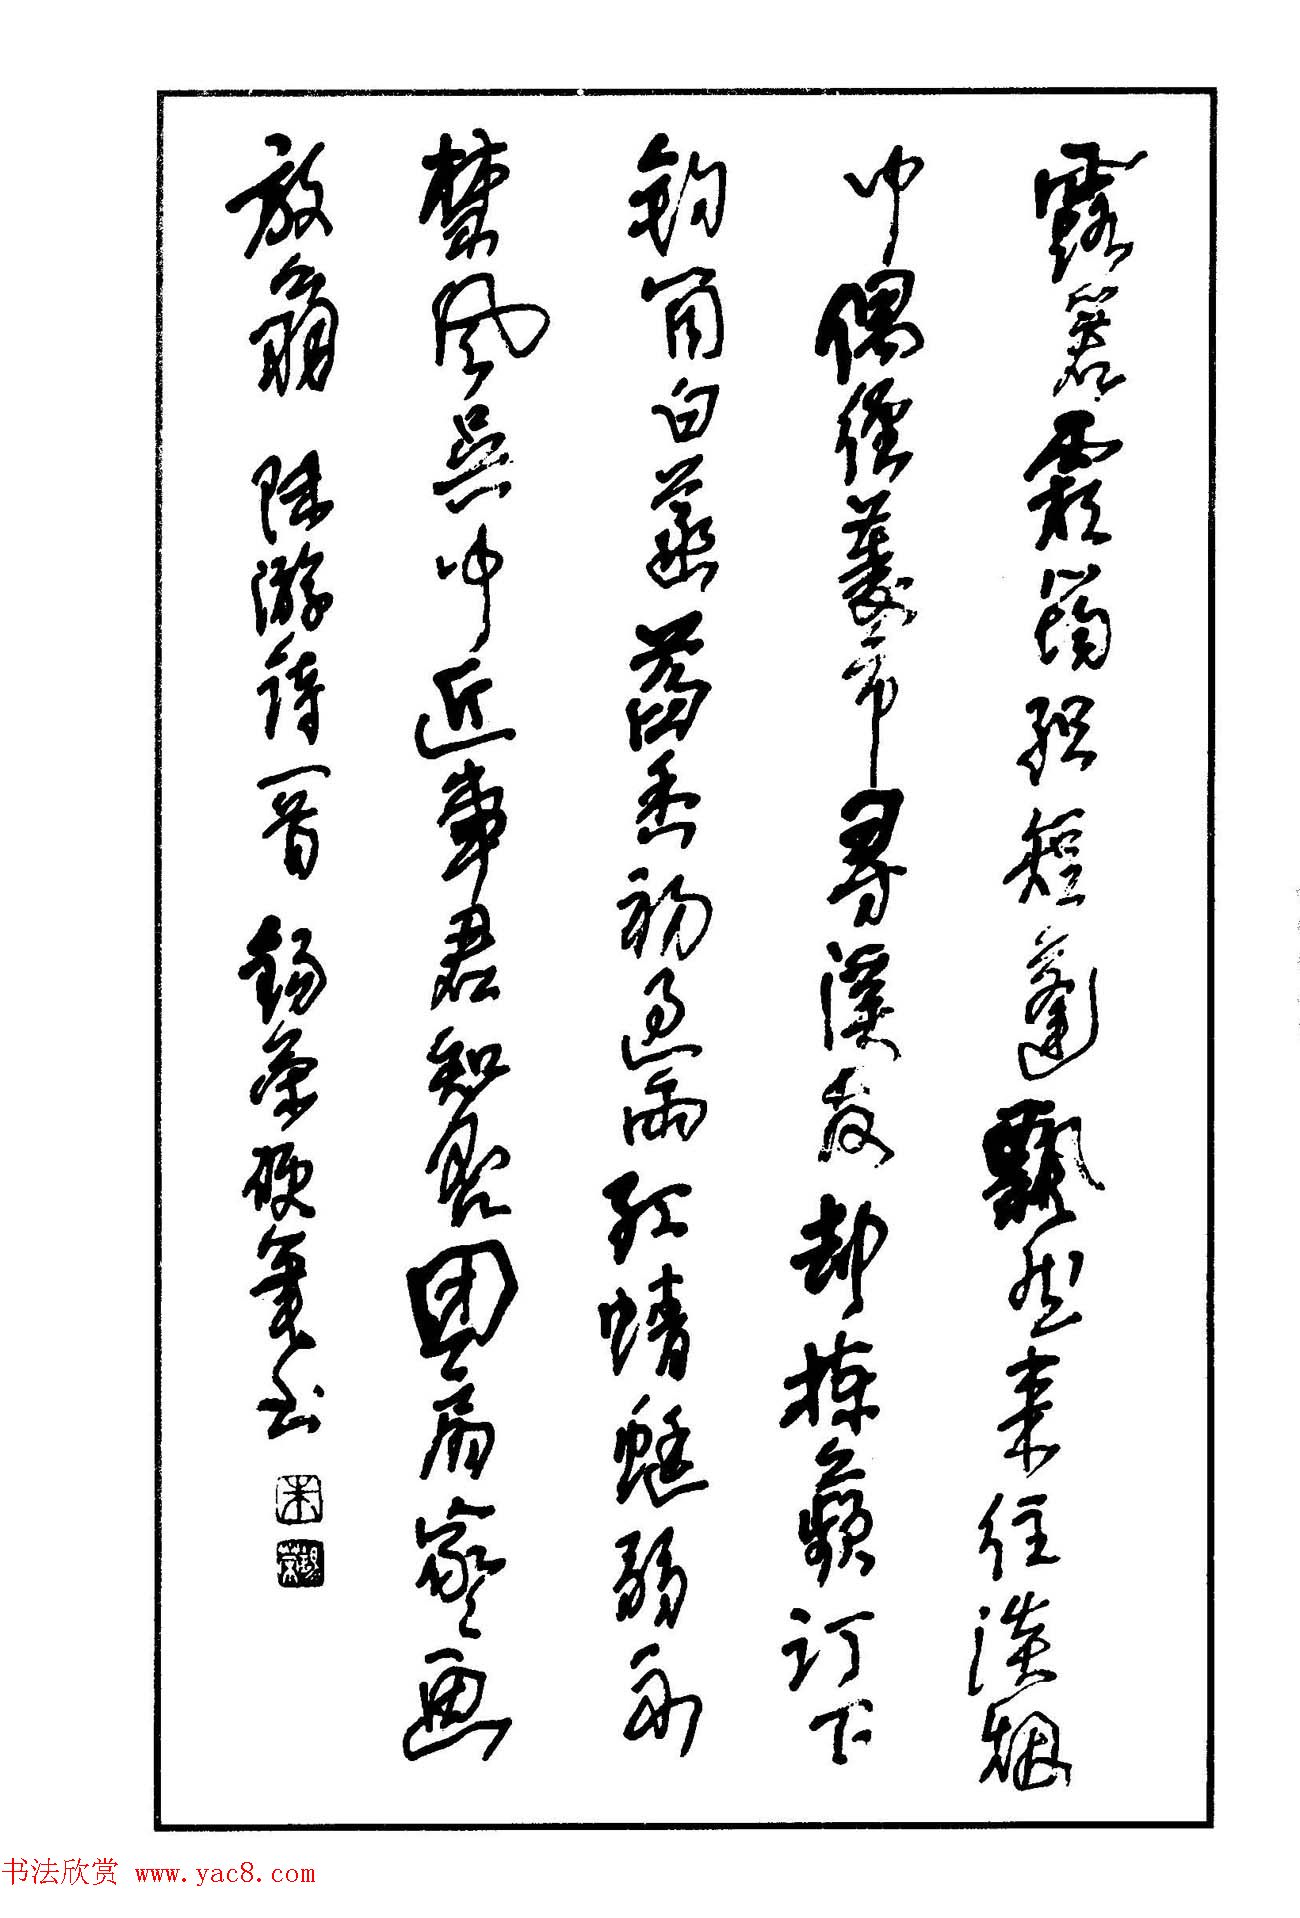 露箬霜筠织短篷飘然来往淡烟
中偶经菱市寻溪友却拣蘋汀下
钓筒白菡萏香初过雨红蜻蜓弱不
禁风吴中近事君知否团扇家々画
放翁 陆游诗一首 锡荣硬笔书
朱
锡荣
书法欣赏 www.yac8.com